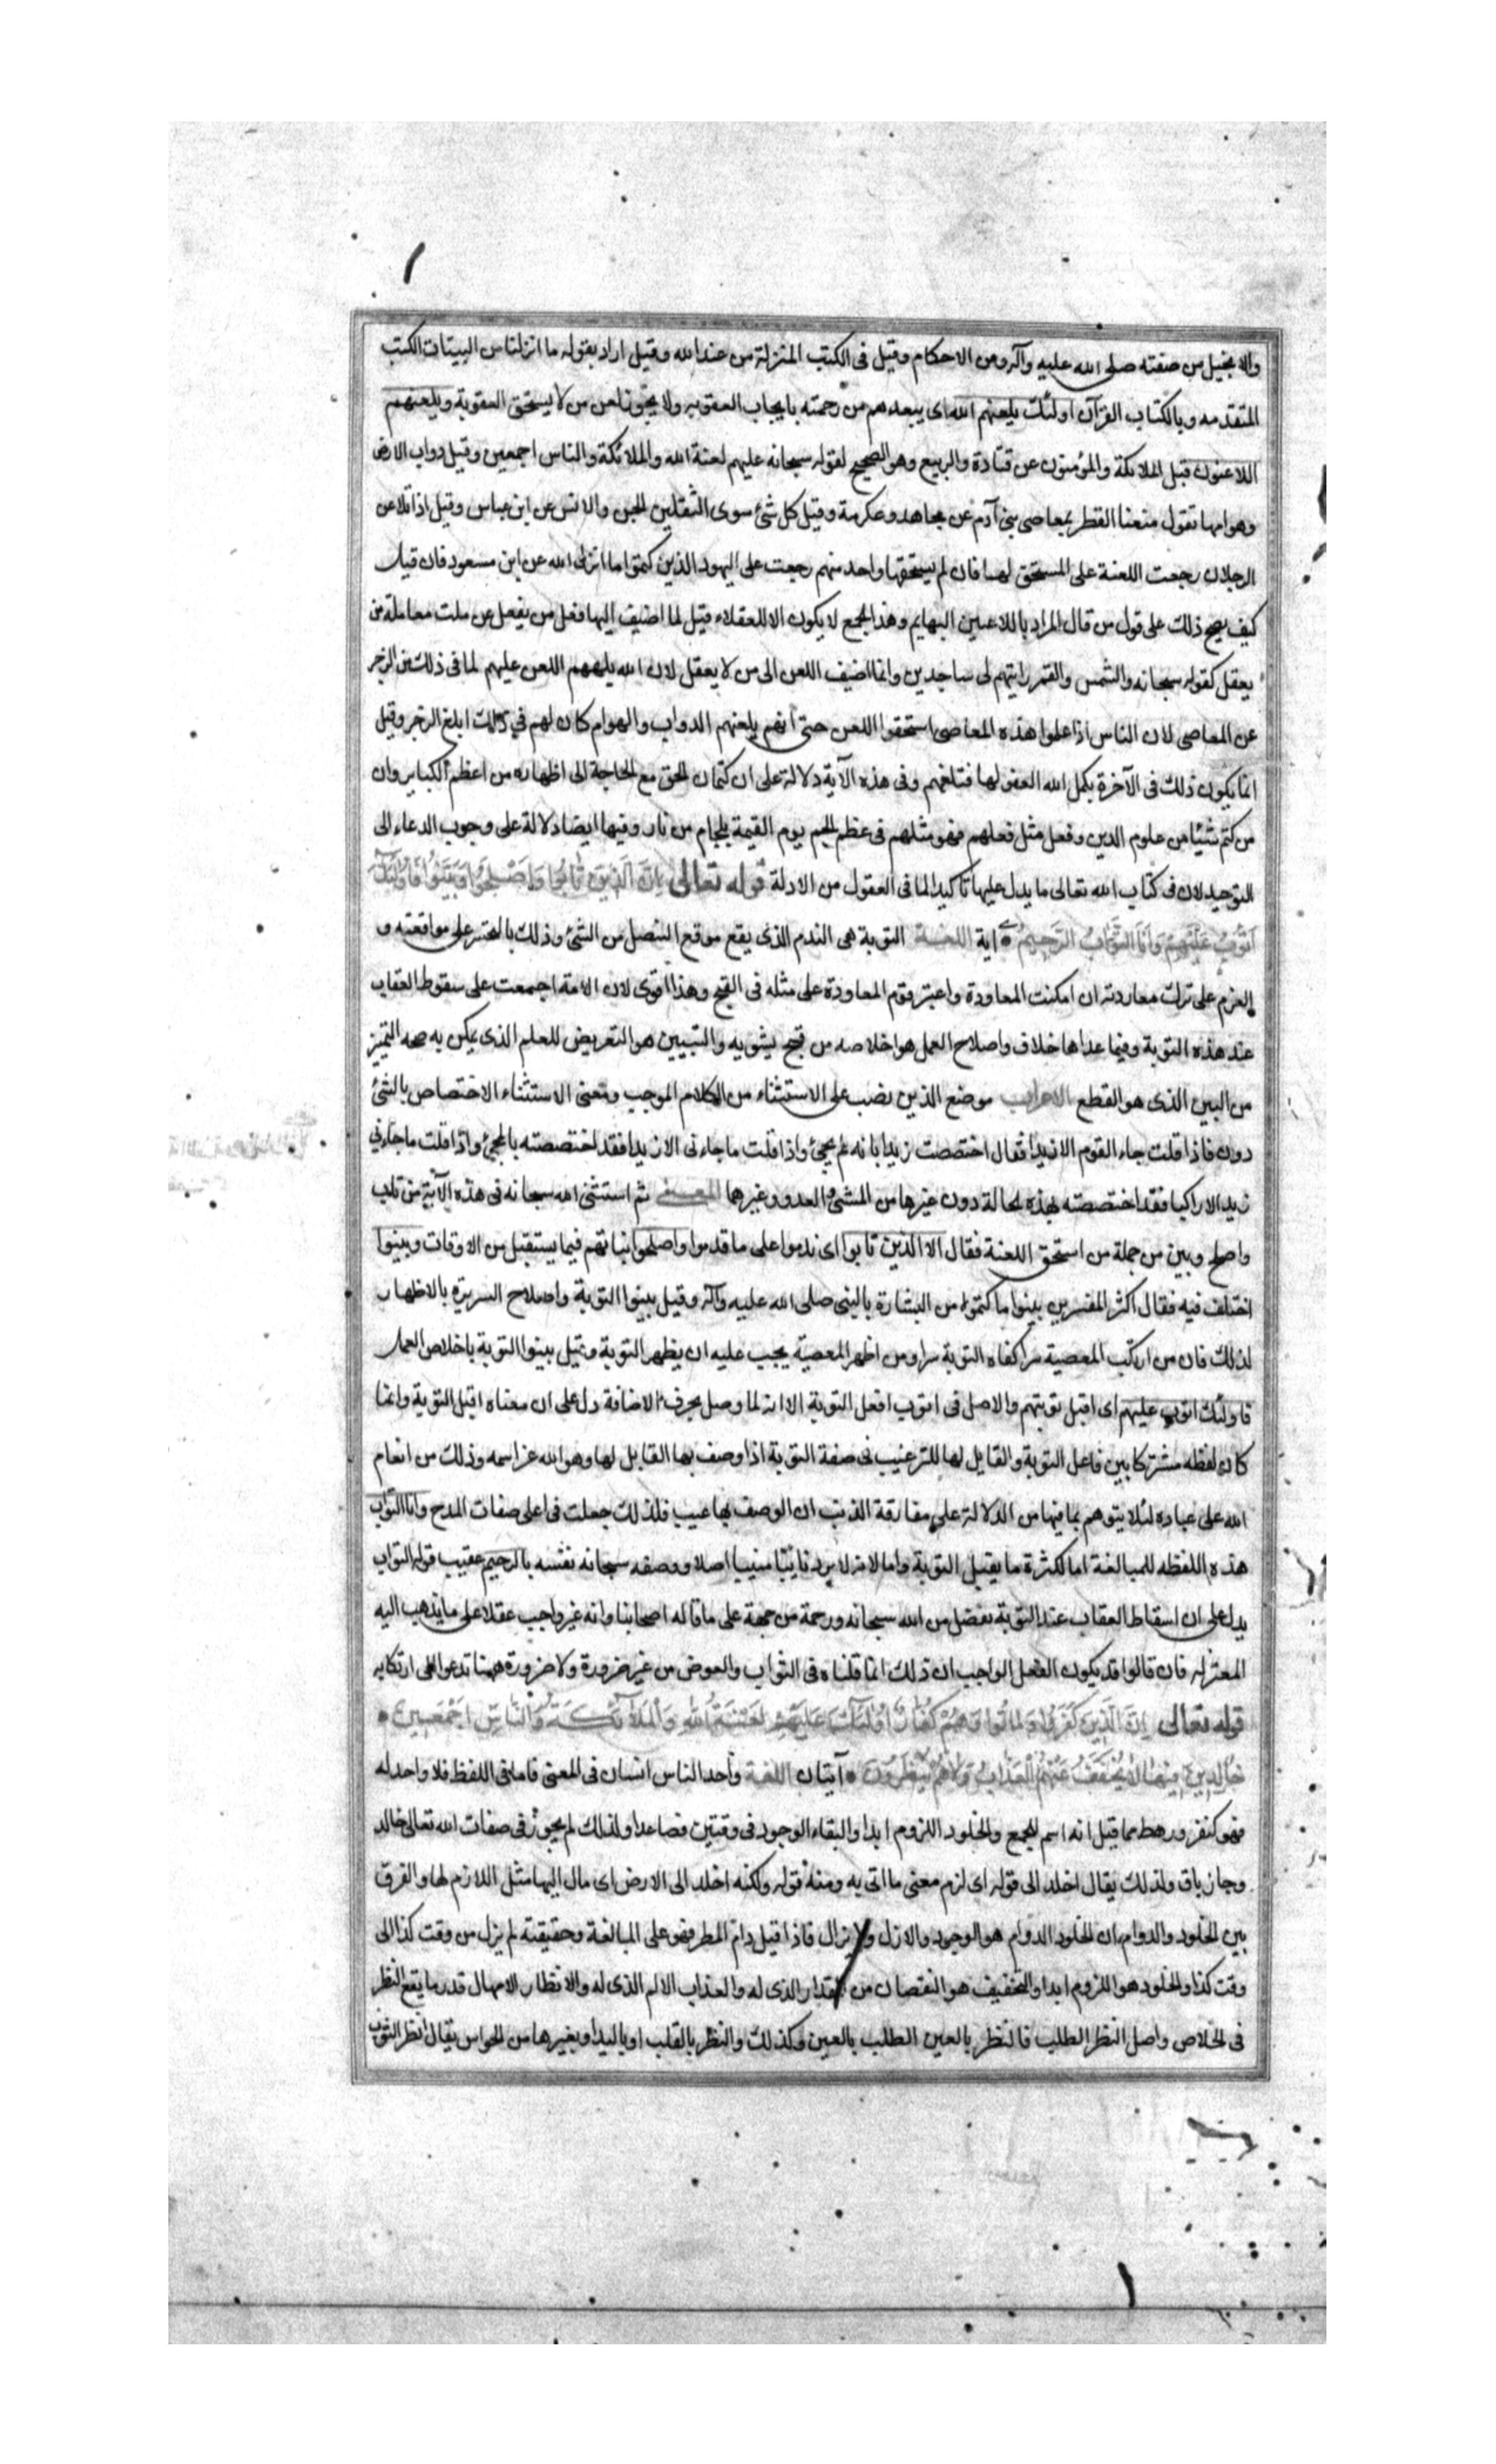 والانجيل من صفته صلى الله عليه وآله ومن الاحكام وقيل فى الكتب المنزلة من عند الله وقيل اراد بقوله ما انزلنا من البينات الكتب
المتقدمه وبالكتاب القرآن اولئك يلعنهم الله اى يبعدهم من رحمته بايجاب العقوبه ولا يجوز لعن من لا يستحق العقوبة ويلعنهم
اللاعنون قيل الملائكة والمؤمنون عن قتادة والربيع وهو الصحيح لقوله سبحانه عليهم لعنة الله والملائكة والناس اجمعين وقيل دواب الارض
وهوامها تقول منعنا القطر بمعاصى بنى آدم عن مجاهد وعكرمة وقيل كل شئ سوى الثقلين الجن والانس عن ابن عباس وقيل اذا تلاعن
الرجلان رجعت اللعنة على المستحق لها فان لم يستحقها واحد منهم رجعت على اليهود الذين كتموا ما انزل الله عن ابن مسعود فان قيل
كيف يصح ذلك على قول من قال المراد باللاعنين البهايم وهذا الجمع لا يكون الا للعقلاء قيل لما اضيف اليها فعل من يفعل عن ملت معاملة من
يعقل كقوله سبحانه والشمس والقمر رايتهم لى ساجدين وانما اضيف اللعن الى من لا يعقل لان الله يلهمهم اللعن عليهم لما فى ذلك من الزجر
عن المعاصى لان الناس اذا علموا هذه المعاصى استحقوا اللعن حتى انهم يلعنهم الدواب والهوام كان لهم في ذلك ابلغ الزجر وقيل
انما يكون ذلك فى الآخرة يكمل الله العقو لها فتلعنهم وفى هذه الآية دلالة على ان كتمان الحق مع الحاجة الى اظهاره من اعظم الكباير وان
من كتم شيئا من علوم الدين وفعل مثل فعلهم فهو مثلهم فى عظم الجرم يوم القيمة بلجام من نار وفيها ايضا دلالة على وجوب الدعاء الى
التوحيد لان فى كتاب الله تعالى ما يدل عليها تاكيدا لما فى العقول من الادلة قوله تعالى اِلَّا الَّذِينَ تَابُوا وَاَصْلَحُوا وَبَيَّنُوا فَاُولٰئِكَ
اَتُوبُ عَلَيْهِمْ وَاَنَا التَّوَّابُ الرَّحِيمُ اية اللغة التوبة هى الندم الذى يقع موقع التنصل من الشئ وذلك بالتحسر على مواقعته و
العزم على ترك معاودته ان امكنت المعاودة واعتبر قوم المعاودة على مثله فى القبح وهذا اقوى لان الامة اجمعت على سقوط العقاب
عند هذه التوبة وفيما عداها خلاف واصلاح العمل هو اخلاصه من قبيح يشوبه والتبيين هو التعريض للعلم الذى يمكن به صحه التميز
من البين الذى هو القطع الاعراب موضع الذين نصب على الاستثناء من الكلام الموجب ومعنى الاستثناء الاختصاص بالشئ
دون فاذا قلت جاء القوم الا زيدا فقال اختصصت زيدا بانه لم يجئ واذا قلت ما جاءنى الا زيدا فقد اختصصته بالمجئ واذا قلت ما جاءني
زيد الا راكبا فقد اختصصته بهذه الحالة دون غيرها من المشى والعدو وغيرهما المعنى ثم استثنى الله سبحانه فى هذه الآية من تاب
واصلح وبين من جملة من استحق اللعنة فقال الا الذين تابوا اى ندموا على ما قدموا واصلحوا نياتهم فيما يستقبل من الاوقات وبينوا
اختلف فيه فقال اكثر المفسرين بينوا ما كتموا من البشارة بالنبى صلى الله عليه وآله وقيل بينوا التوبة واصلاح السريرة بالاظهار
لذلك فان من ارتكب المعصية سرا كفاه التوبة سرا ومن اظهر المعصية يجب عليه ان يظهر التوبة وقيل بينوا التوبة باخلاص العمل
فاولئك اتوب عليهم اى اقبل توبتهم والاصل فى اتوب افعل التوبة الا انه لما وصل بحرف الاضافة دل على ان معناه اقبل التوبة وانما
كان لفظه مشتركا بين فاعل التوبة والقابل لها للترغيب فى صفة التوبة اذا وصف بها القابل لها وهو الله عز اسمه وذلك من انعام
الله على عباده لئلا يتوهم بما فيها من الدلالة على مقارفة الذنب ان الوصف بها عيب فلذلك جعلت فى اعلى صفات المدح وانا التواب
هذه اللفظه للمبالغة اما لكثرة ما يقبل التوبة واما لانه لا يرد تائبا منيبا اصلا ووصفه سبحانه نفسه بالرحيم عقيب قوله التواب
يدل على ان اسقاط العقاب عند التوبة تفضل من الله سبحانه ورحمة من جهة على ما قاله اصحابنا وانه غير واجب عقلا على ما يذهب اليه
المعتزله فان قالوا قد يكون الفعل الواجب ان ذلك انما قلناه فى الثواب والعوض من غير ضرورة ولا ضرورة ههنا تدعوا الى ارتكابه
قوله تعالى اِنَّ الَّذِينَ كَفَرُوا وَمَاتُوا وَهُمْ كُفَّارٌ اُولٰئِكَ عَلَيْهِمْ لَعْنَةُ اللّٰهِ وَالْمَلَائِكَةِ وَالنَّاسِ اَجْمَعِينَ
خَالِدِينَ فِيهَا لَا يُخَفَّفُ عَنْهُمُ الْعَذَابُ وَلَا هُمْ يُنْظَرُونَ آيتان اللغة واحد الناس انسان فى المعنى فاما فى اللفظ فلا واحد له
فهو كنفر ورهط مما قيل انه اسم للجمع والخلود اللزوم ابدا والبقاء الوجود فى وقتين فصاعدا ولذلك لم يجوز فى صفات الله تعالى خالد
وجاز باق ولذلك يقال اخلد الى قوله اى لزم معنى ما اتى به ومنه قوله ولكنه اخلد الى الارض اى مال اليها مثل اللازم لها والفرق
بين الخلود والدوام ان الخلود الدوام هو الوجود والازل ولا يزال فاذا قيل دام المطر فهو على المبالغة وحقيقته لم يزل من وقت كذا الى
وقت كذا والخلود هو اللزوم ابدا والتخفيف هو النقصان من المقدار الذى له والعذاب الالم الذى له والانظار الامهال قدر ما يقع النظر
فى الخلاص واصل النظر الطلب فالنظر بالعين الطلب بالعين وكذلك والنظر بالقلب او باليد او بغيرها من الحواس يقال انظر الثوب